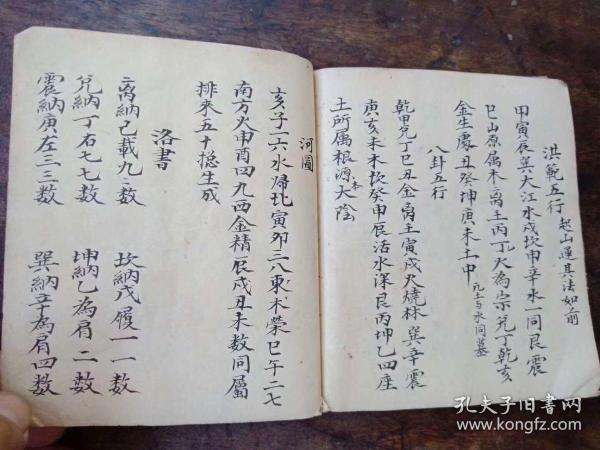 洪範五行 起山運其法如前
甲寅辰巽大江水戌坎申辛水一同艮震
巳山原屬木离壬丙丁火為宗兌丁乾亥
金生處丑癸坤庚未土中 凡土与水同墓
八卦五行
乾甲兌丁巳丑金离壬寅戌火燒林巽辛震
庚亥未木坎癸申辰活水深艮丙坤乙四座
土所属根源本大陰
河圖
亥子一六水歸北寅卯三八東木榮巳午二七
南方火申酉四九西金精辰戌丑未数同屬
排來五十揔生成
洛書
离納己載九九数 坎納戊履一一数
兌納丁右七七数 坤納乙為肩二数
震納庚左三三数 巽納辛為肩四数
孔夫子旧書网
www.kongfz.com